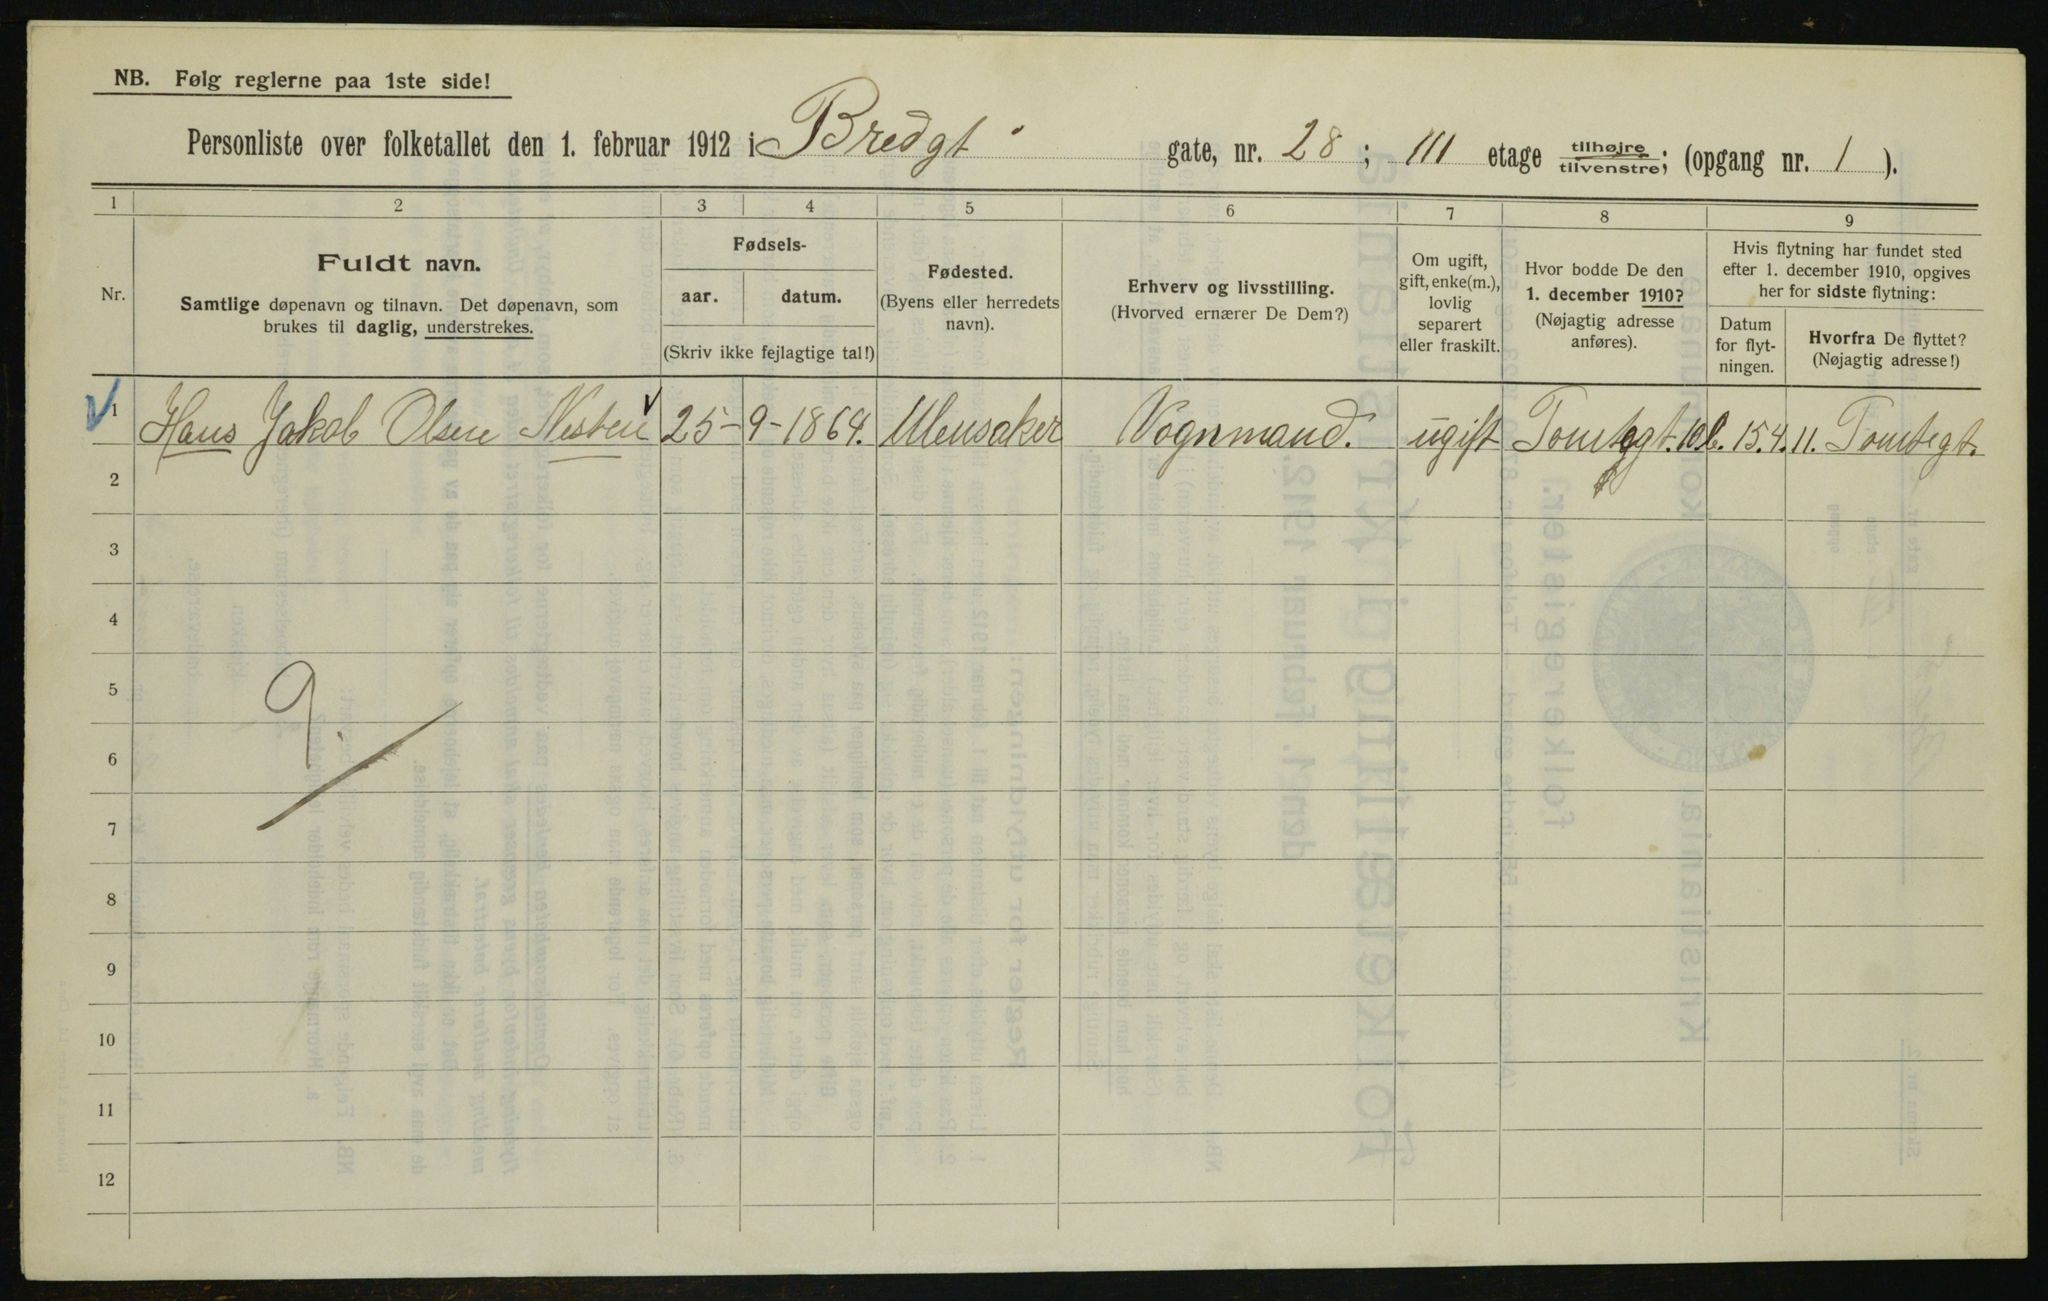 NB. Følg reglerne paa 1ste side!
Personliste over folketallet den 1. februar 1912 i Bredgt gate, nr. 28; III etage tilhøjre/tilvenstre; (opgang nr. 1).
1 2 3 4 5 6 7 8 9
Nr.
Fuldt navn.
Samtlige døpenavn og tilnavn. Det døpenavn, som
brukes til daglig, understrekes.
Fødsels-
aar. datum.
(Skriv ikke fejlagtige tal!)
Fødested.
(Byens eller herredets
navn).
Erhverv og livsstilling.
(Hvorved ernærer De Dem?)
Om ugift,
gift, enke(m.),
lovlig
separert
eller fraskilt.
Hvor bodde De den
1. december 1910?
(Nøjagtig adresse
anføres).
Hvis flytning har fundet sted
efter 1. december 1910, opgives
her for sidste flytning:
Datum
for flyt-
ningen.
Hvorfra De flyttet?
(Nøjagtig adresse!)
1 Hans Jakob Olsen 25-9-1864. Ullensaker Vognmand. ugift Tomtegt. 10b. 15.4.11. Tomtegt.
2
3
4
5
6
7
8
9
10
11
12
9